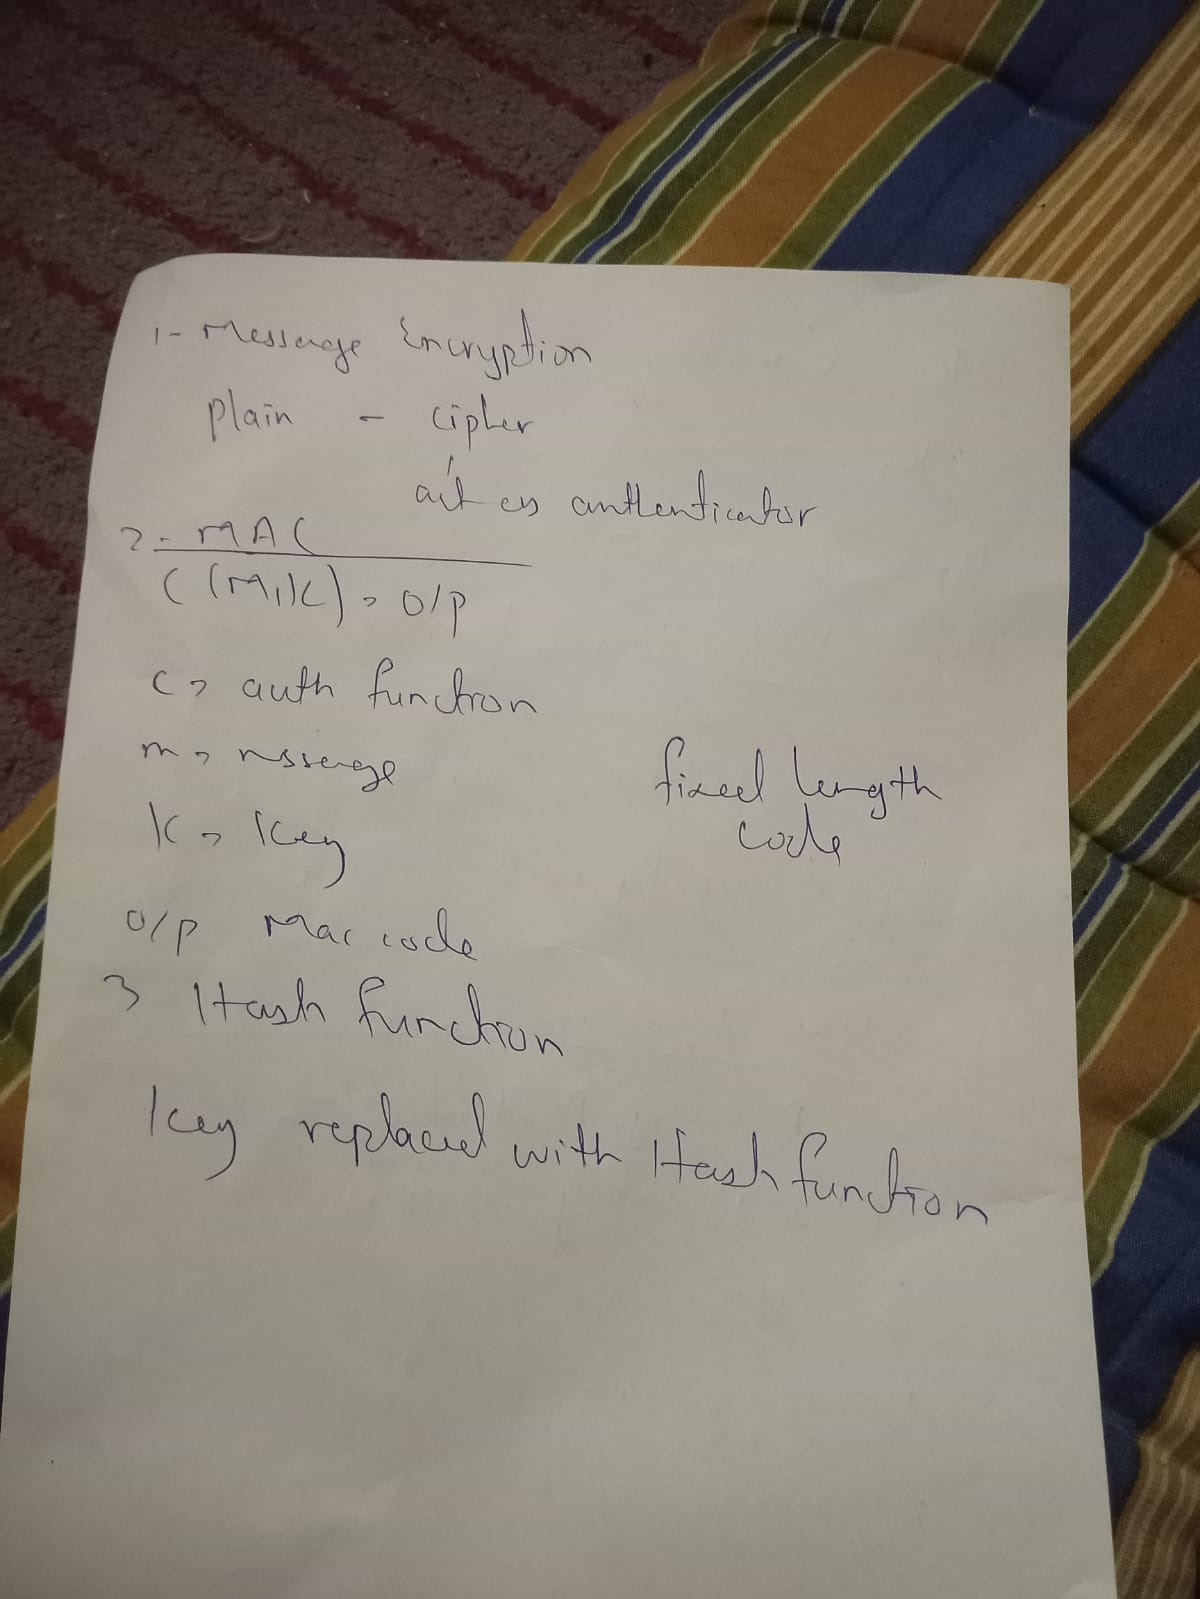 1- Message Encryption
Plain - cipher
act as authenticator
2- MAC
C(M,K) = O/P
C = auth function
m = message
K = Key
fixed length
code
O/P Mac code
3 Hash function
Key replaced with Hash function